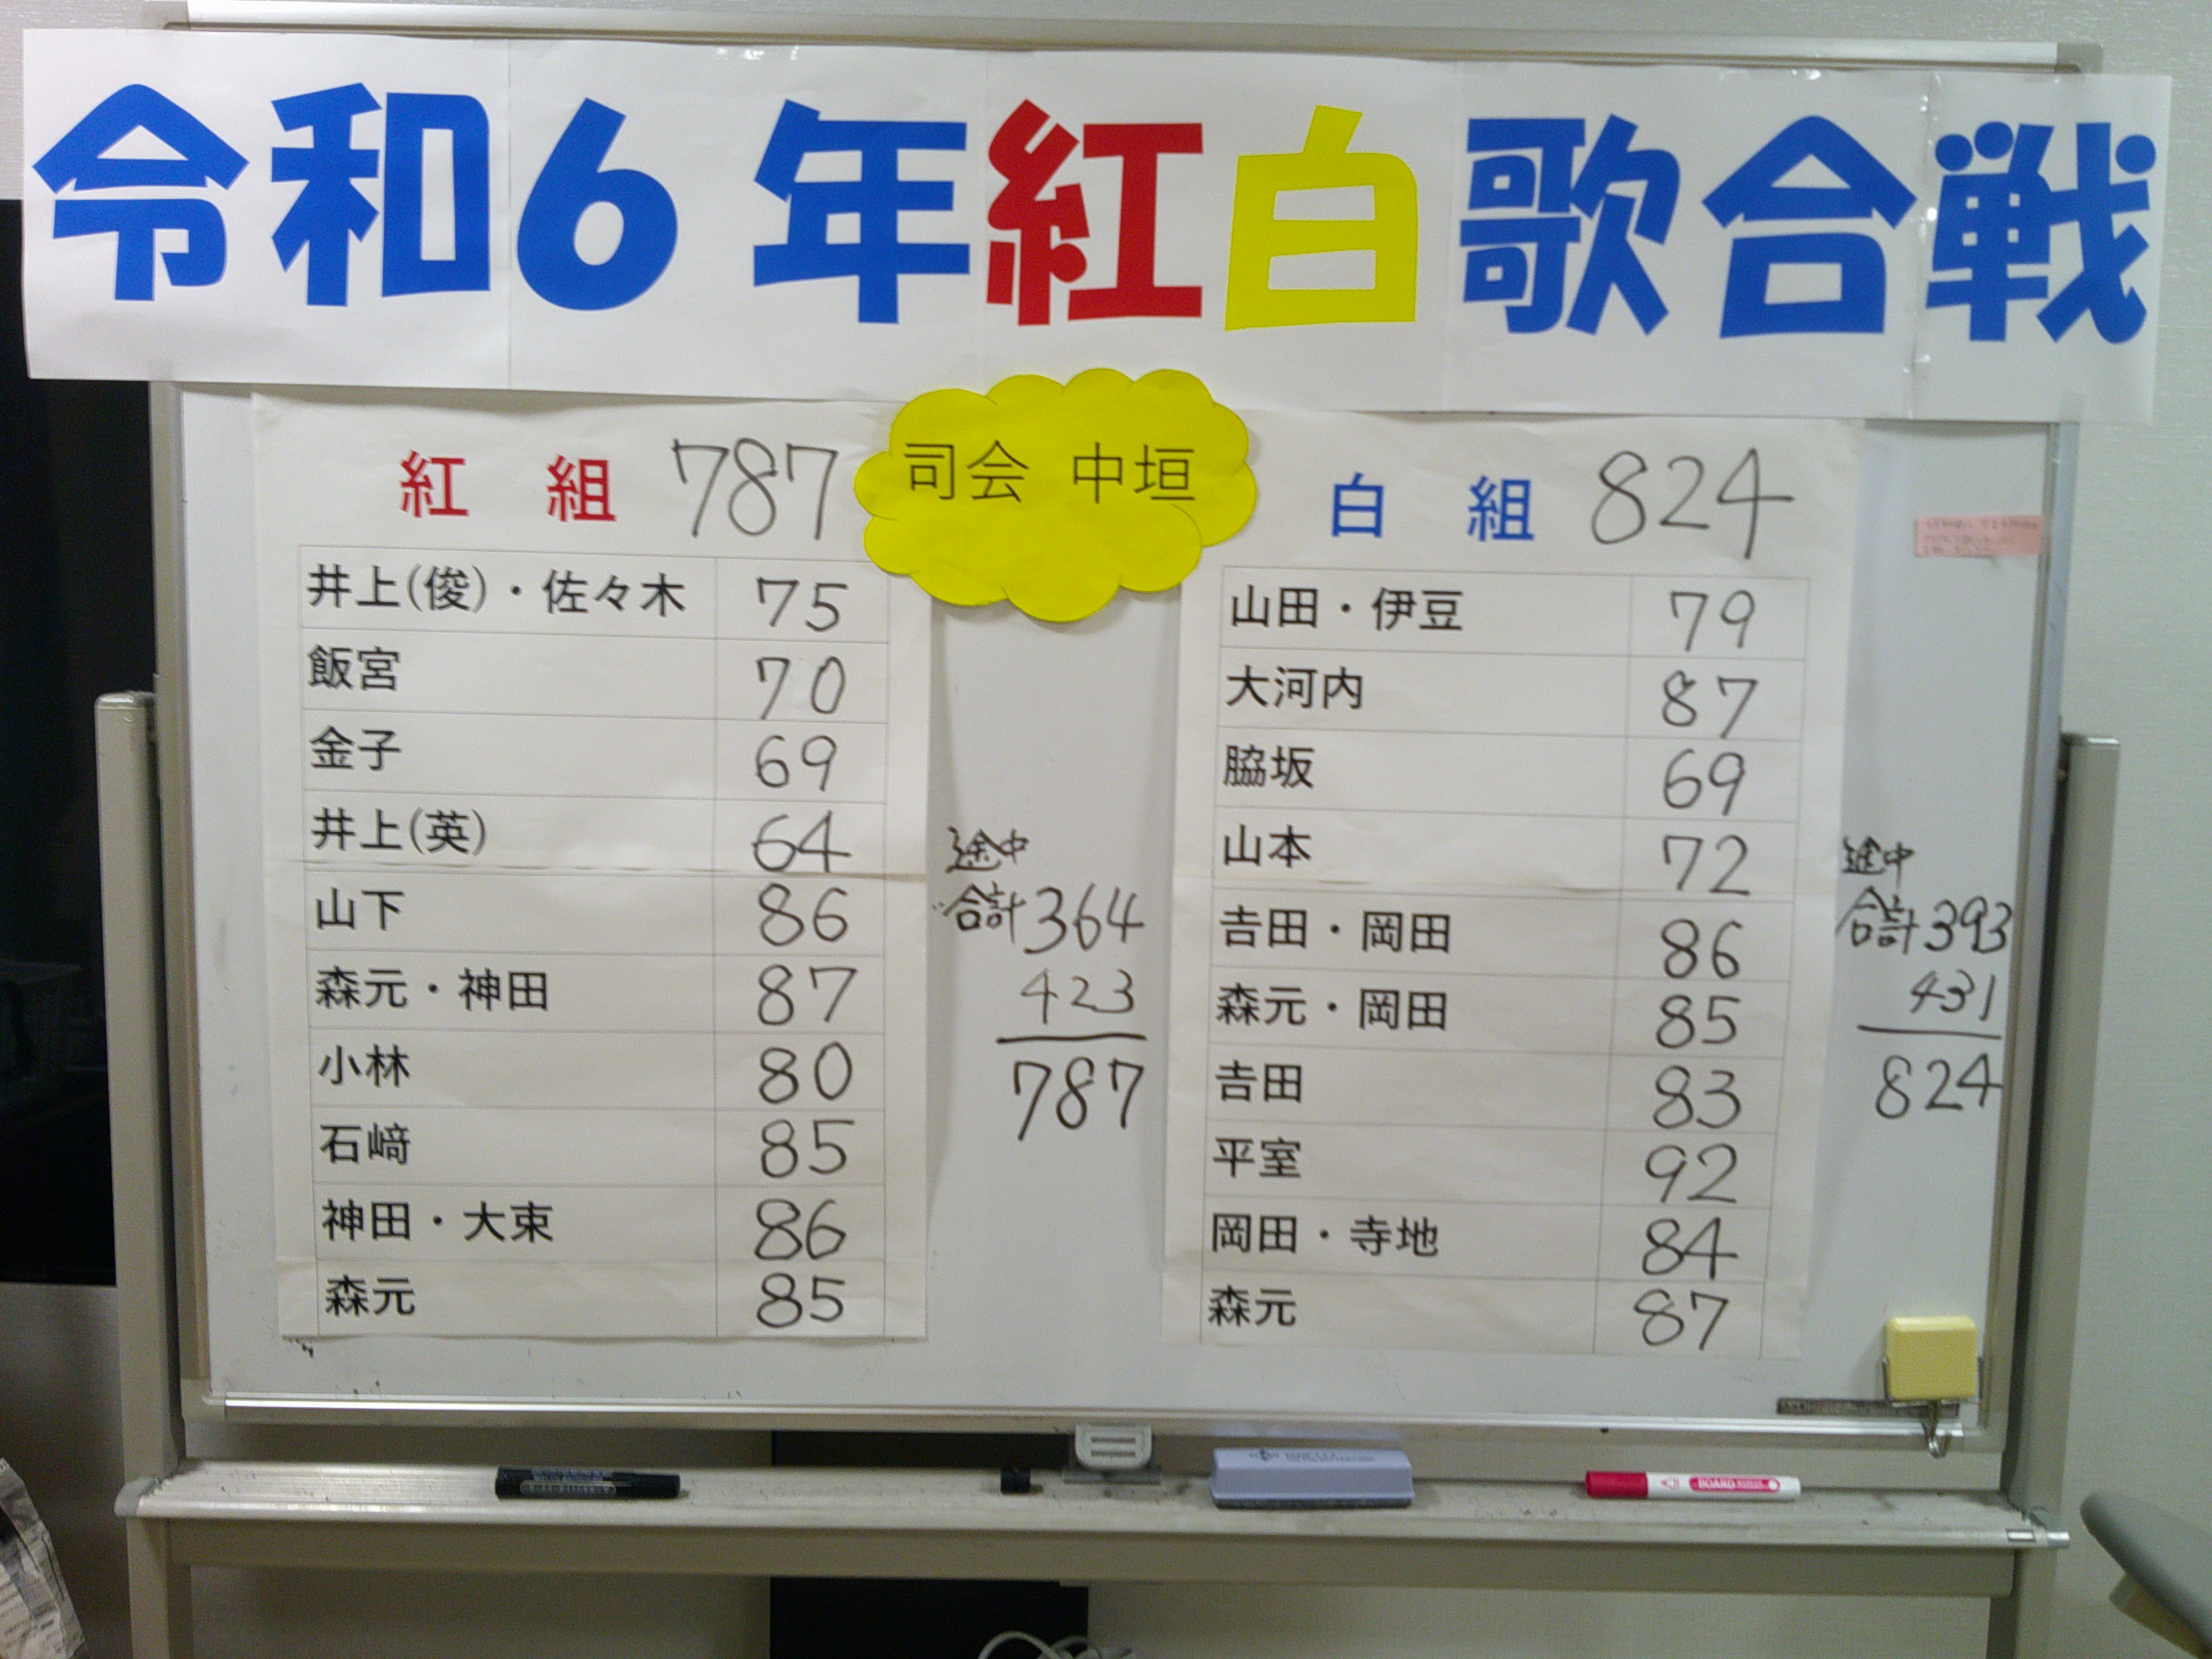 令和6年紅白歌合戦
司会 中垣
紅 組 787
井上(俊)・佐々木 75
飯宮 70
金子 69
井上(英) 64
山下 86
森元・神田 87
小林 80
石﨑 85
神田・大束 86
森元 85
途中
合計 364
423
787
白 組 824
山田・伊豆 79
大河内 87
脇坂 69
山本 72
𠮷田・岡田 86
森元・岡田 85
𠮷田 83
平室 92
岡田・寺地 84
森元 87
途中
合計 393
431
824
BOARD